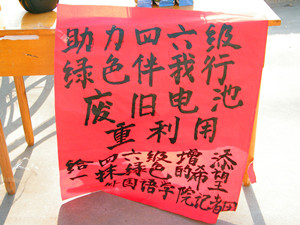 助力四六级
绿色伴我行
废旧电池
重利用
给四六级增添
一抹绿色的希望
外国语学院记者团